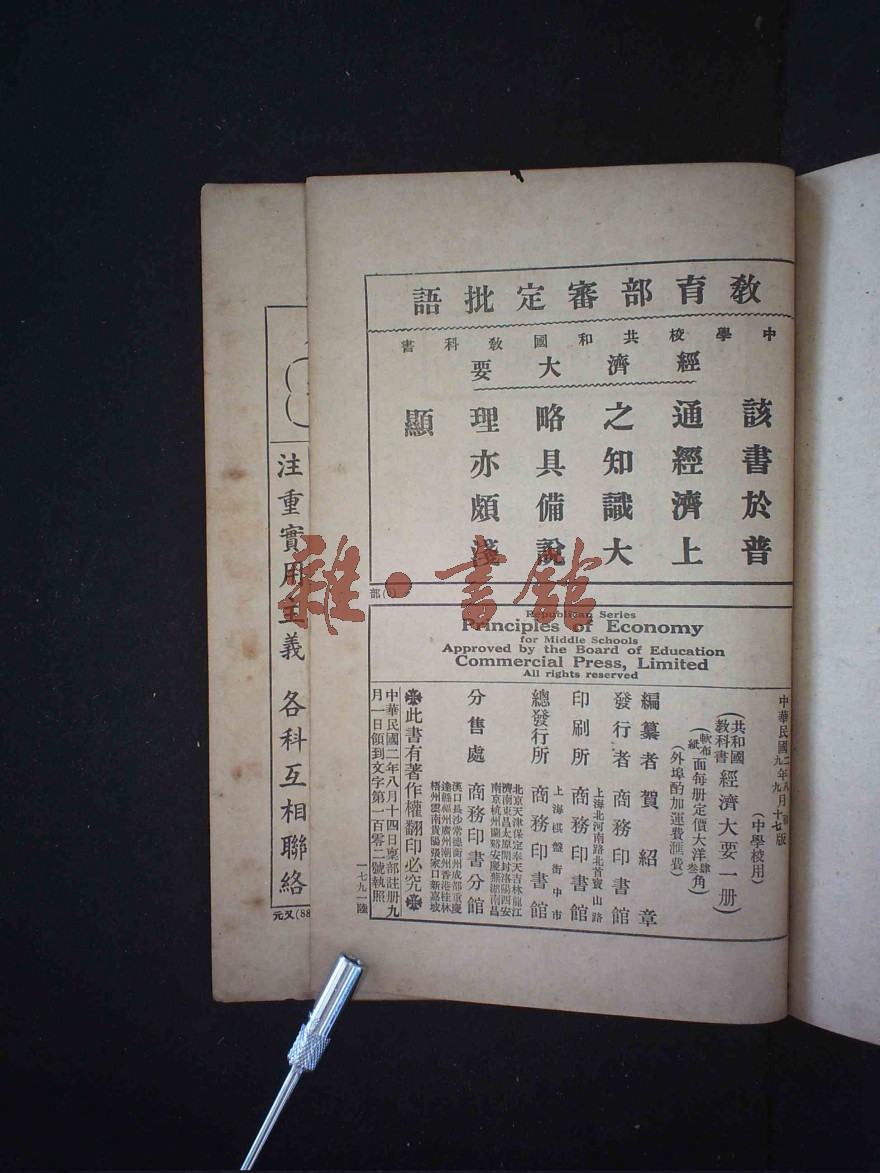 教育部審定批語
中學校共和國教科書
經濟大要
該書於普
通經濟上
之知識大
略具備說
理亦頗淺
顯
Republican Series
Principles of Economy
for Middle Schools
Approved by the Board of Education
Commercial Press, Limited
All rights reserved
中華民國
月十七版
(中學校用)
(共和國教科書 經濟大要一冊)
軟布面每册定價大洋
紙
肆角
叁
(外埠酌加運費滙費)
編纂者 賀紹章
發行者 商務印書館
上海北河南路北首寶山路
印刷所 商務印書館
上海棋盤街中市
總發行所 商務印書館
北京天津保定奉天吉林龍江
濟南東昌太原開封洛陽西安
南京杭州蘭谿安慶蕪湖南昌
漢口長沙常德衡州成都重慶
福州廣州潮州香港桂林
梧州雲南貴陽張家口新嘉坡
分售處 商務印書分館
此書有著作權翻印必究
中華民國二年八月十四日稟部註冊九
月一日領到文字第一百零二號執照
一七九一陸
注重實用主義 各科互相聯絡
元又(88
雜·書館